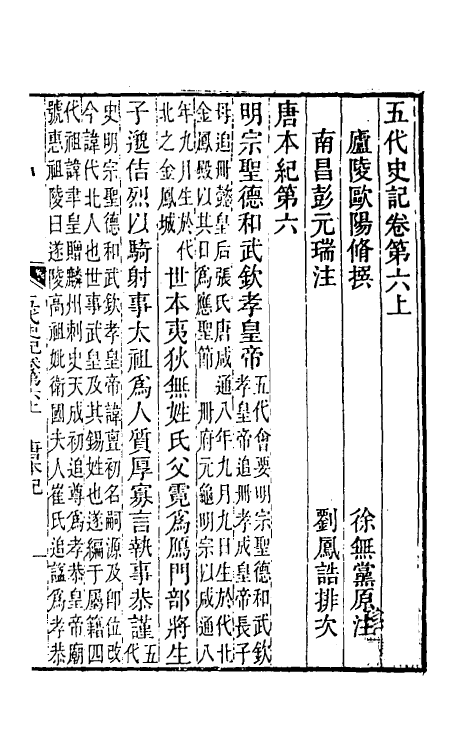 五代史記卷第六上
廬陵歐陽脩撰 徐無黨原注
南昌彭元瑞注 劉鳳誥排次
唐本紀第六
明宗聖德和武欽孝皇帝五代會要明宗聖德和武欽
孝皇帝追冊孝成皇帝長子
母追冊懿皇后張氏唐咸通八年九月九日生於代北
金鳳毀以其日爲應聖節 冊府元龜明宗以咸通八
年九月生於代
北之金鳳城世本夷狄無姓氏父霓爲鴈門部將生
子邈佶烈以騎射事太祖爲人質厚寡言執事恭謹五代
史明宗聖德和武欽孝皇帝諱亶初名嗣源及即位改
今諱代北人也世事武皇及其錫姓也遂編于屬籍四
代祖諱聿皇贈麟州刺史天成初追尊爲孝恭皇帝廟
號惠祖陵曰遂陵高祖妣衛國夫人崔氏追諡爲孝恭
五代史記卷第六上 唐本紀 一